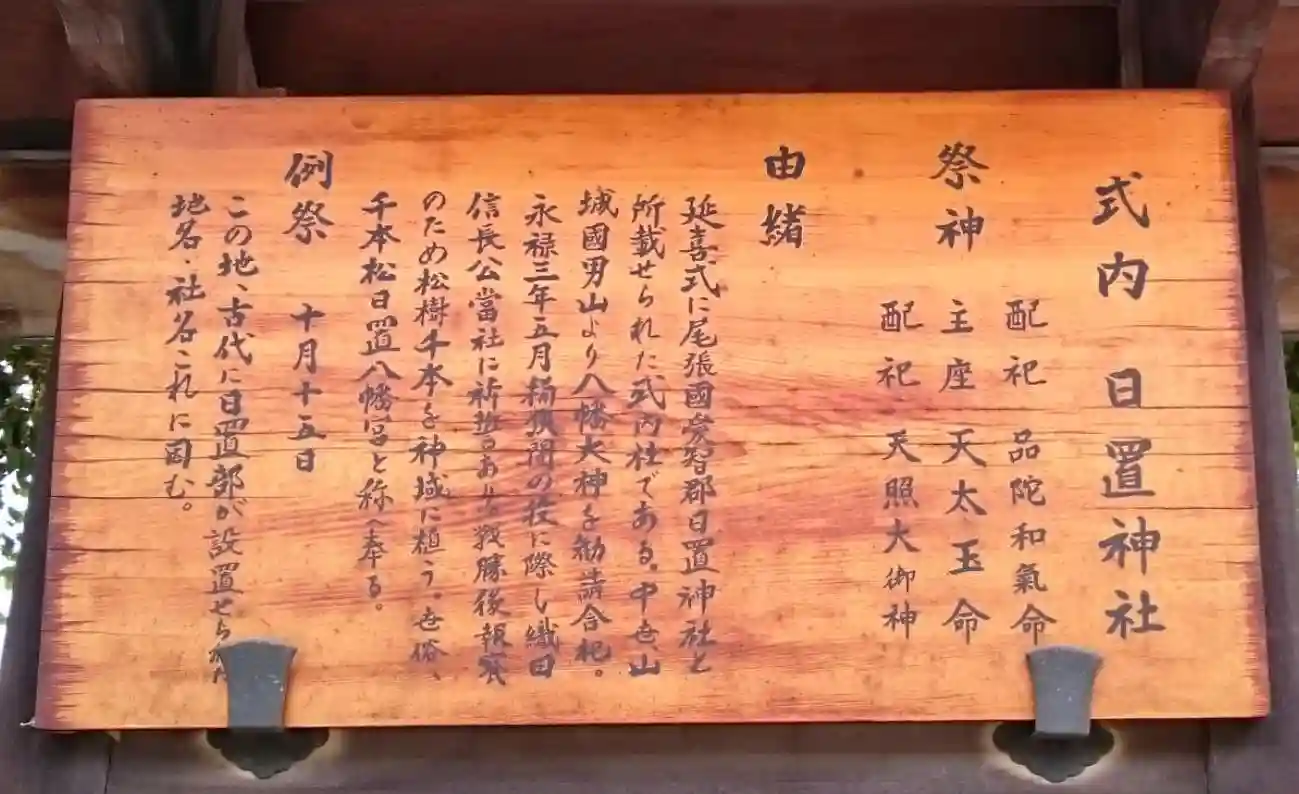 式内日置神社
配祀 品陀和氣命
祭神 主座 天太玉命
配祀 天照大御神
由緒
延喜式に尾張國愛智郡日置神社と
所載せられた式内社である。中世、山
城國男山より八幡大神を勧請合祀。
永禄三年五月桶狭間の役に際し織田
信長公當社に祈担るあり戦勝後報賽
のため松樹千本を神域に植う。世俗、
千本松日置八幡宮と称へ奉る。
例祭 十月十五日
この地、古代に日置部が設置せられた
地名・社名これに因む。